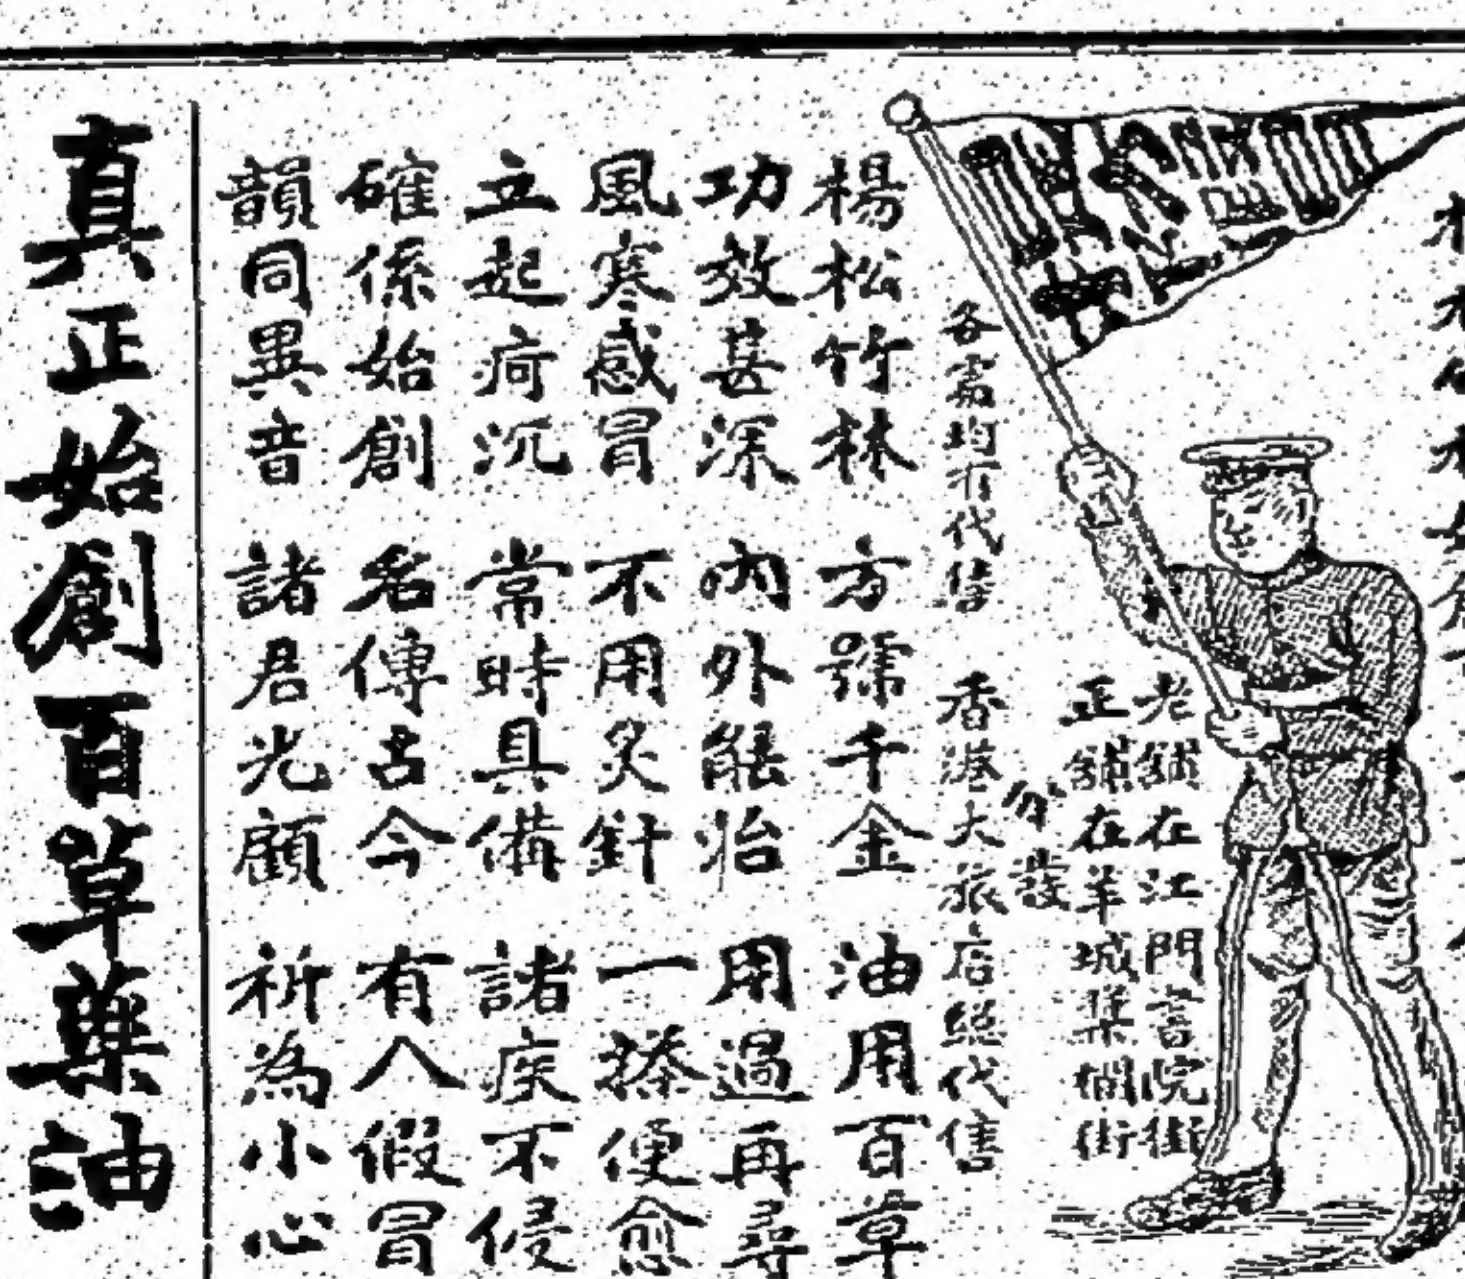 老舖在江門書院街
正舖在羊城槳欄街
分發
各埠均有代售 香港大旅店總代售
楊松竹林 方號千金 油用百草
功效甚深 內外能治 用過再尋
風寒感冒 不用炙針 一搽便愈
立起疴沉 常時具備 諸疾不侵
確係始創 名傳古今 有人假冒
韻同異音 諸君光顧 祈為小心
真正始創百草藥油